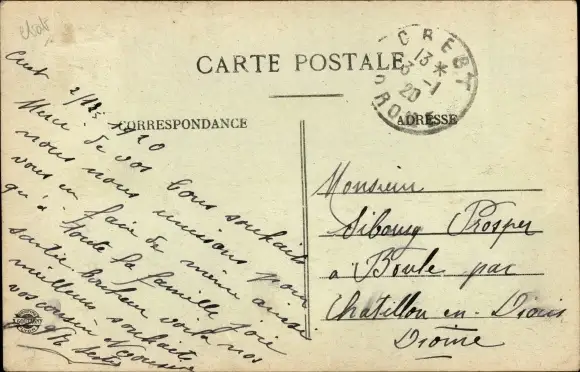 Crest
CARTE POSTALE
CREST
13 *
3 - 1
20
DROME
CORRESPONDANCE
ADRESSE
Crest 1920
Merci de vos bons souhaits
nous nous unissons pour
vous en faire de même ainsi
qu'à toute la famille joie
santé bonheur voilà nos
meilleurs souhaits
vos cousin et cousine
Monsieur
Sibourg Prosper
à Boule par
Chatillon en - Diois
Drome